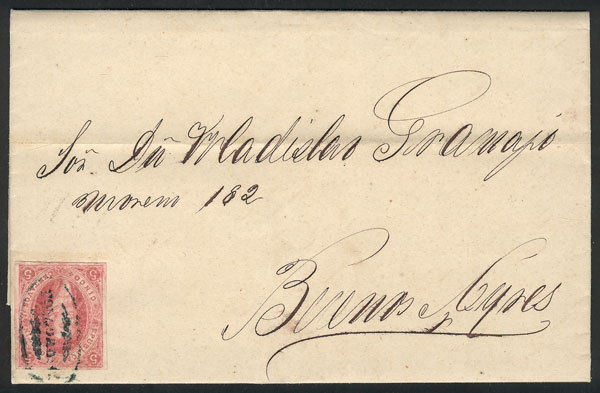 Sor. Dn Wladislao Gramajo
Moreno 182
Buenos Ayres
5 5
5 5